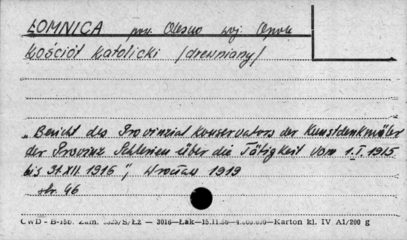 ŁOMNICA pow. Olesno woj. Opole
Kościół Katolicki /drewniany/
"Bericht des Provinzial Konservators der Kunstdenkmäler
der Provinz Schlesien über die Tätigkeit vom 1.I.1915
bis 31.XII.1916", Wrocław 1919
str. 46
CWD - B-156. Zam. S/Łż — 3016—Łak—15.11.65— —Karton kl. IV A1/200 g